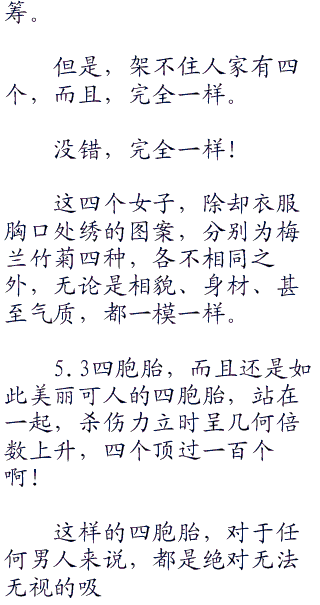 筹。
但是，架不住人家有四
个，而且，完全一样。
没错，完全一样！
这四个女子，除却衣服
胸口处绣的图案，分别为梅
兰竹菊四种，各不相同之
外，无论是相貌、身材、甚
至气质，都一模一样。
5.3四胞胎，而且还是如
此美丽可人的四胞胎，站在
一起，杀伤力立时呈几何倍
数上升，四个顶过一百个
啊！
这样的四胞胎，对于任
何男人来说，都是绝对无法
无视的吸